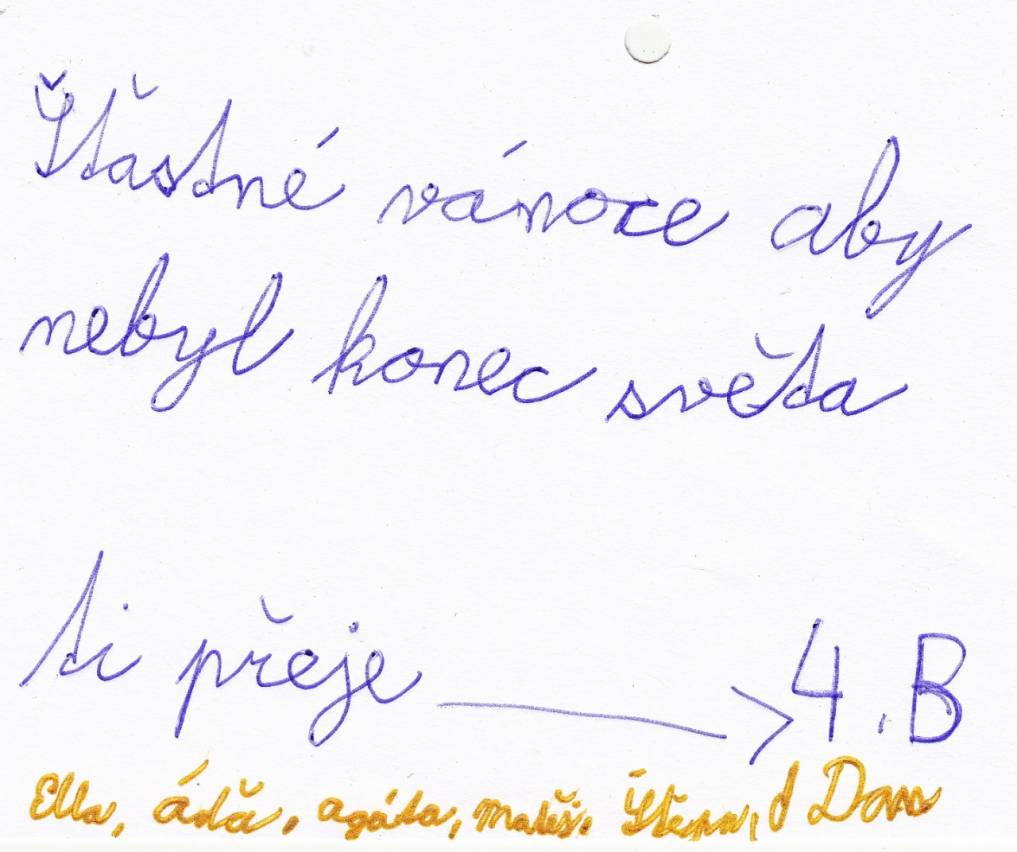 Šťastné vánoce aby
nebyl konec světa
ti přeje → 4.B
Ella, áďa, agáta, matěj, Dan